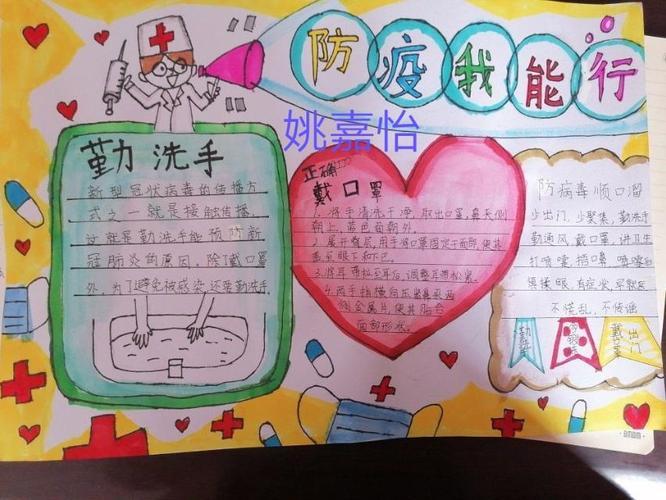 防疫我能行
姚嘉怡
勤洗手
新型冠状病毒的传播方
式之一就是接触传播,
这就是勤洗手能预防新
冠肺炎的原因,除了戴口罩
外,为了避免被感染还要勤洗手
正确
戴口罩
1.将手清洗干净,取出口罩,鼻夹侧
朝上,蓝色面朝外.
2.展开
3.将耳带拉至耳后,调整耳带松紧.
4.两手指横向压出鼻夹两
侧金属片,使其贴合
面部形状.
防病毒顺口溜
少出门,少聚集,勤洗手
勤通风,戴口罩,讲卫生
打喷嚏,捂口鼻,喷嚏后
慎揉眼,有症状,早就医
不慌乱,不传谣
勤
戴
出门